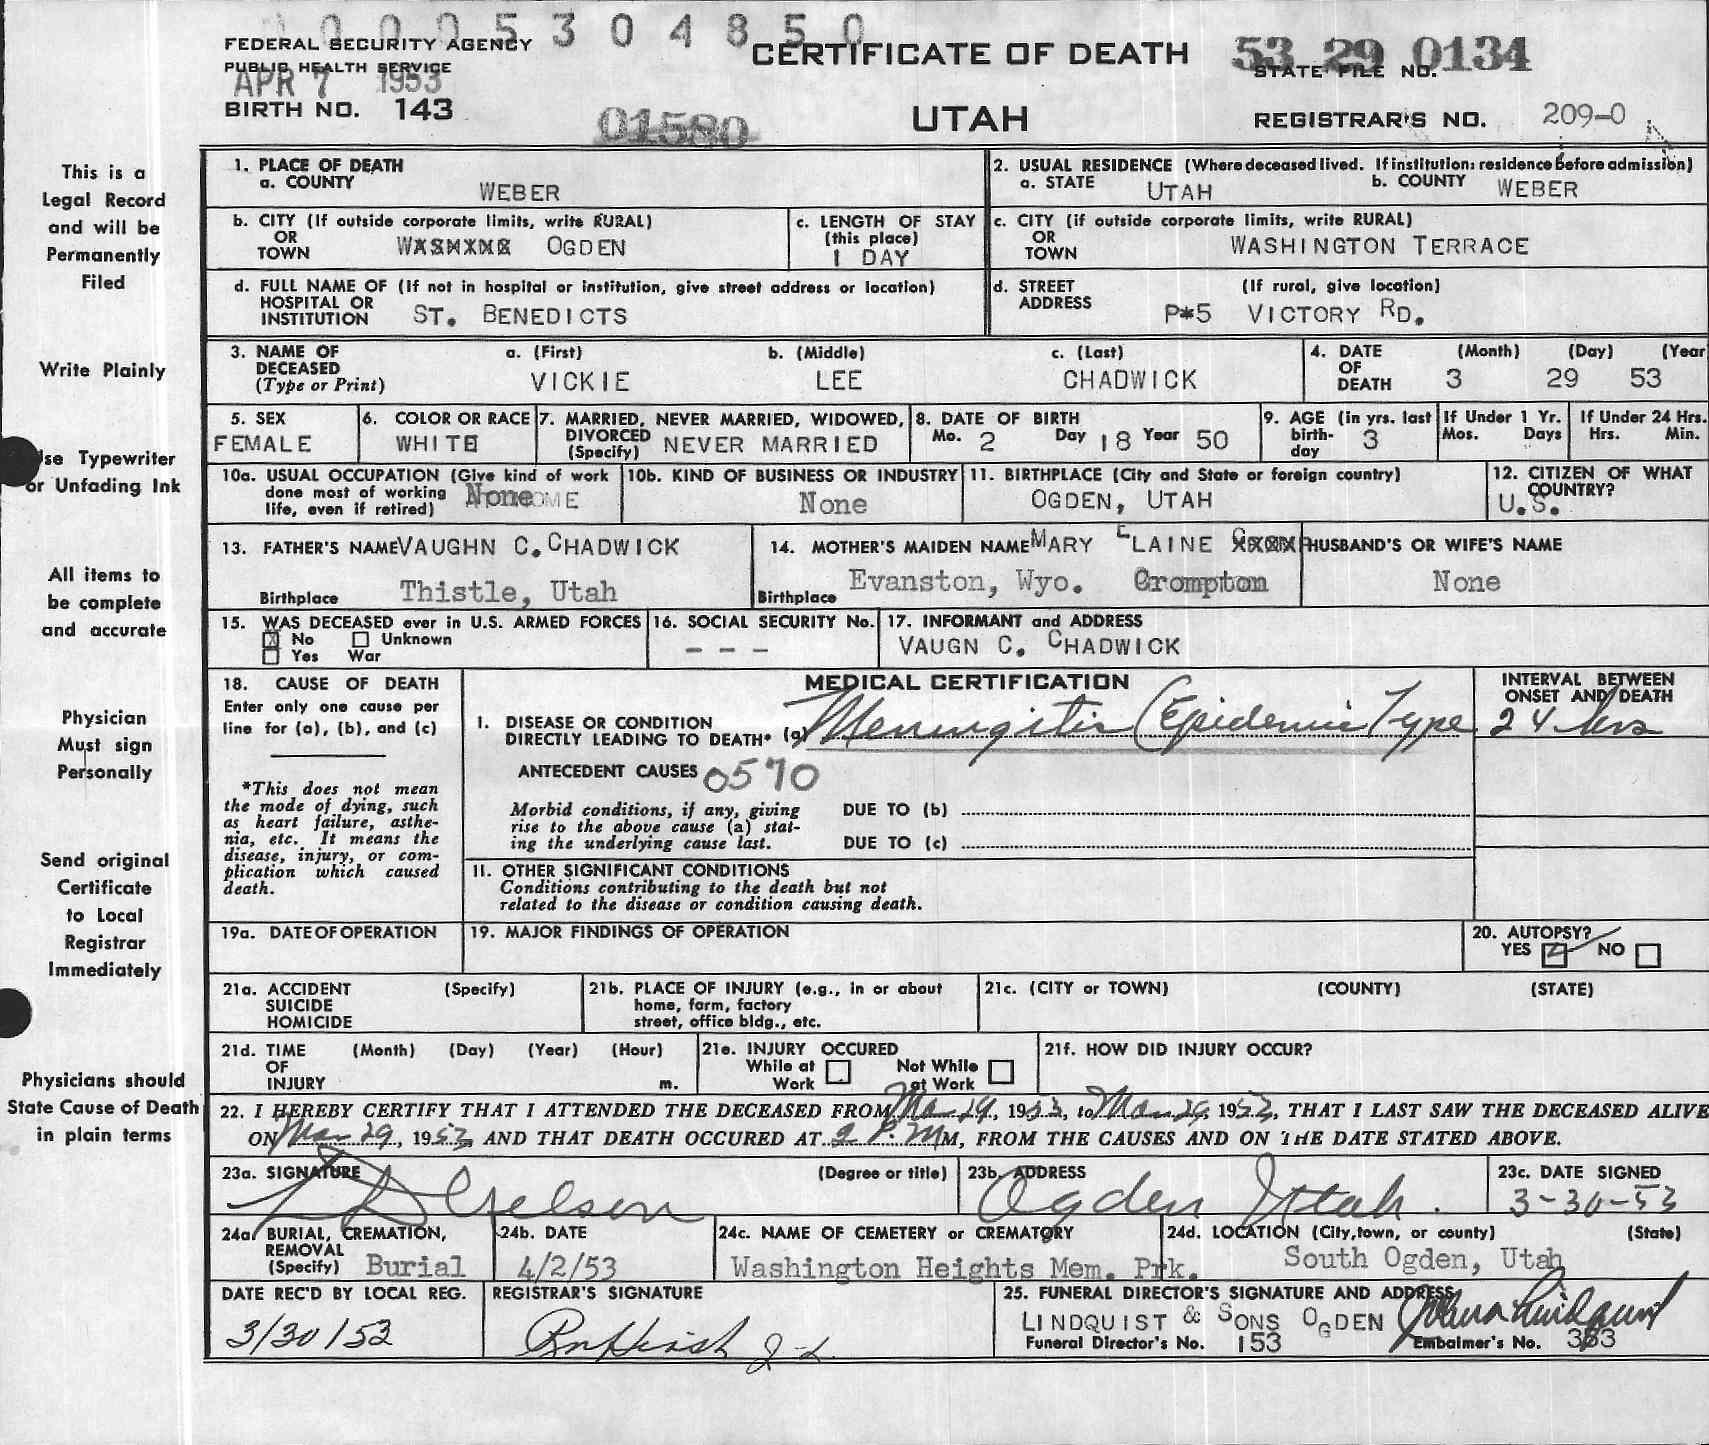 0005304850
FEDERAL SECURITY AGENCY
PUBLIC HEALTH SERVICE
APR 7 1953
BIRTH NO. 143
01580
CERTIFICATE OF DEATH
UTAH
53 29 0134
STATE FILE NO.
REGISTRAR'S NO. 209-0
This is a
Legal Record
and will be
Permanently
Filed
Write Plainly
Use Typewriter
or Unfading Ink
All items to
be complete
and accurate
Physician
Must sign
Personally
Send original
Certificate
to Local
Registrar
Immediately
Physicians should
State Cause of Death
in plain terms
1. PLACE OF DEATH
a. COUNTY WEBER
2. USUAL RESIDENCE (Where deceased lived. If institution: residence before admission)
a. STATE UTAH b. COUNTY WEBER
b. CITY (If outside corporate limits, write RURAL)
OR
TOWN OGDEN
c. LENGTH OF STAY
(this place)
1 DAY
c. CITY (if outside corporate limits, write RURAL)
OR
TOWN WASHINGTON TERRACE
d. FULL NAME OF (If not in hospital or institution, give street address or location)
HOSPITAL OR
INSTITUTION ST. BENEDICTS
d. STREET (If rural, give location)
ADDRESS P*5 VICTORY RD.
3. NAME OF a. (First) b. (Middle) c. (Last)
DECEASED
(Type or Print) VICKIE LEE CHADWICK
4. DATE (Month) (Day) (Year
OF
DEATH 3 29 53
5. SEX
FEMALE
6. COLOR OR RACE
WHITE
7. MARRIED, NEVER MARRIED, WIDOWED,
DIVORCED
(Specify) NEVER MARRIED
8. DATE OF BIRTH
Mo. 2 Day 18 Year 50
9. AGE (in yrs. last
birth-
day 3
If Under 1 Yr.
Mos. Days
If Under 24 Hrs.
Hrs. Min.
10a. USUAL OCCUPATION (Give kind of work
done most of working
life, even if retired) None
10b. KIND OF BUSINESS OR INDUSTRY
None
11. BIRTHPLACE (City and State or foreign country)
OGDEN, UTAH
12. CITIZEN OF WHAT
COUNTRY?
U.S.
13. FATHER'S NAME VAUGHN C. CHADWICK
Birthplace Thistle, Utah
14. MOTHER'S MAIDEN NAME MARY ELAINE
Birthplace Evanston, Wyo. Crompton
HUSBAND'S OR WIFE'S NAME
None
15. WAS DECEASED ever in U.S. ARMED FORCES
No Unknown
Yes War
16. SOCIAL SECURITY No.
- - -
17. INFORMANT and ADDRESS
VAUGN C. CHADWICK
18. CAUSE OF DEATH
Enter only one cause per
line for (a), (b), and (c)
*This does not mean
the mode of dying, such
as heart failure, asthe-
nia, etc. It means the
disease, injury, or com-
plication which caused
death.
MEDICAL CERTIFICATION
I. DISEASE OR CONDITION
DIRECTLY LEADING TO DEATH* (a) Meningitis (Epidemic Type
ANTECEDENT CAUSES 0570
Morbid conditions, if any, giving
rise to the above cause (a) stat-
ing the underlying cause last.
DUE TO (b)
DUE TO (c)
II. OTHER SIGNIFICANT CONDITIONS
Conditions contributing to the death but not
related to the disease or condition causing death.
INTERVAL BETWEEN
ONSET AND DEATH
24 hrs
19a. DATE OF OPERATION
19. MAJOR FINDINGS OF OPERATION
20. AUTOPSY?
YES NO
21a. ACCIDENT (Specify)
SUICIDE
HOMICIDE
21b. PLACE OF INJURY (e.g., in or about
home, farm, factory
street, office bldg., etc.
21c. (CITY or TOWN) (COUNTY) (STATE)
21d. TIME (Month) (Day) (Year) (Hour)
OF
INJURY m.
21e. INJURY OCCURED
While at Not While
Work at Work
21f. HOW DID INJURY OCCUR?
22. I HEREBY CERTIFY THAT I ATTENDED THE DECEASED FROM Mar 29, 1953, to Mar 29, 1953, THAT I LAST SAW THE DECEASED ALIVE
ON Mar 29, 1953, AND THAT DEATH OCCURED AT 2 P.M M, FROM THE CAUSES AND ON THE DATE STATED ABOVE.
23a. SIGNATURE (Degree or title)
23b. ADDRESS
Ogden Utah.
23c. DATE SIGNED
3-30-53
24a BURIAL, CREMATION,
REMOVAL
(Specify) Burial
24b. DATE
4/2/53
24c. NAME OF CEMETERY or CREMATORY
Washington Heights Mem. Prk.
24d. LOCATION (City, town, or county) (State)
South Ogden, Utah
DATE REC'D BY LOCAL REG.
3/30/53
REGISTRAR'S SIGNATURE
25. FUNERAL DIRECTOR'S SIGNATURE AND ADDRESS
LINDQUIST & SONS OGDEN
Funeral Director's No. 153 Embalmer's No.